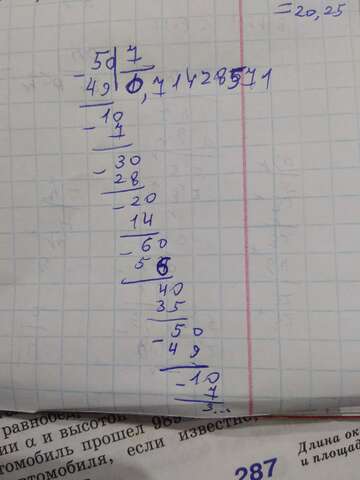 =20,25
- 50 7
49 0,71428571
10
- 7
- 30
28
- 20
14
- 60
56
40
35
- 50
49
- 10
7
3...
и α и высотой
томобиль прошел
томобиля, если известно,
287
Длина ок
и площад